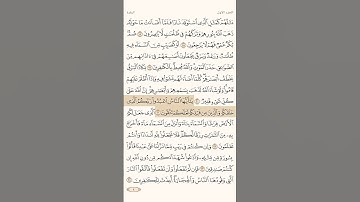 الجزء الأول البقرة
مَثَلُهُمْ كَمَثَلِ ٱلَّذِى ٱسْتَوْقَدَ نَارًا فَلَمَّآ أَضَآءَتْ مَا حَوْلَهُۥ
ذَهَبَ ٱللَّهُ بِنُورِهِمْ وَتَرَكَهُمْ فِى ظُلُمَٰتٍ لَّا يُبْصِرُونَ ١٧ صُمٌّۢ
بُكْمٌ عُمْىٌ فَهُمْ لَا يَرْجِعُونَ ١٨ أَوْ كَصَيِّبٍ مِّنَ ٱلسَّمَآءِ فِيهِ
ظُلُمَٰتٌ وَرَعْدٌ وَبَرْقٌ يَجْعَلُونَ أَصَٰبِعَهُمْ فِىٓ ءَاذَانِهِم مِّنَ
ٱلصَّوَٰعِقِ حَذَرَ ٱلْمَوْتِ وَٱللَّهُ مُحِيطٌۢ بِٱلْكَٰفِرِينَ ١٩ يَكَادُ
ٱلْبَرْقُ يَخْطَفُ أَبْصَٰرَهُمْ كُلَّمَآ أَضَآءَ لَهُم مَّشَوْا۟ فِيهِ وَإِذَآ أَظْلَمَ عَلَيْهِمْ
قَامُوا۟ وَلَوْ شَآءَ ٱللَّهُ لَذَهَبَ بِسَمْعِهِمْ وَأَبْصَٰرِهِمْ إِنَّ ٱللَّهَ عَلَىٰ
كُلِّ شَىْءٍ قَدِيرٌ ٢٠ يَٰٓأَيُّهَا ٱلنَّاسُ ٱعْبُدُوا۟ رَبَّكُمُ ٱلَّذِى
خَلَقَكُمْ وَٱلَّذِينَ مِن قَبْلِكُمْ لَعَلَّكُمْ تَتَّقُونَ ٢١ ٱلَّذِى جَعَلَ لَكُمُ
ٱلْأَرْضَ فِرَٰشًا وَٱلسَّمَآءَ بِنَآءً وَأَنزَلَ مِنَ ٱلسَّمَآءِ مَآءً فَأَخْرَجَ بِهِۦ
مِنَ ٱلثَّمَرَٰتِ رِزْقًا لَّكُمْ فَلَا تَجْعَلُوا۟ لِلَّهِ أَندَادًا وَأَنتُمْ
تَعْلَمُونَ ٢٢ وَإِن كُنتُمْ فِى رَيْبٍ مِّمَّا نَزَّلْنَا عَلَىٰ عَبْدِنَا فَأْتُوا۟
بِسُورَةٍ مِّن مِّثْلِهِۦ وَٱدْعُوا۟ شُهَدَآءَكُم مِّن دُونِ ٱللَّهِ إِن
كُنتُمْ صَٰدِقِينَ ٢٣ فَإِن لَّمْ تَفْعَلُوا۟ وَلَن تَفْعَلُوا۟ فَٱتَّقُوا۟ ٱلنَّارَ
ٱلَّتِى وَقُودُهَا ٱلنَّاسُ وَٱلْحِجَارَةُ أُعِدَّتْ لِلْكَٰفِرِينَ ٢٤